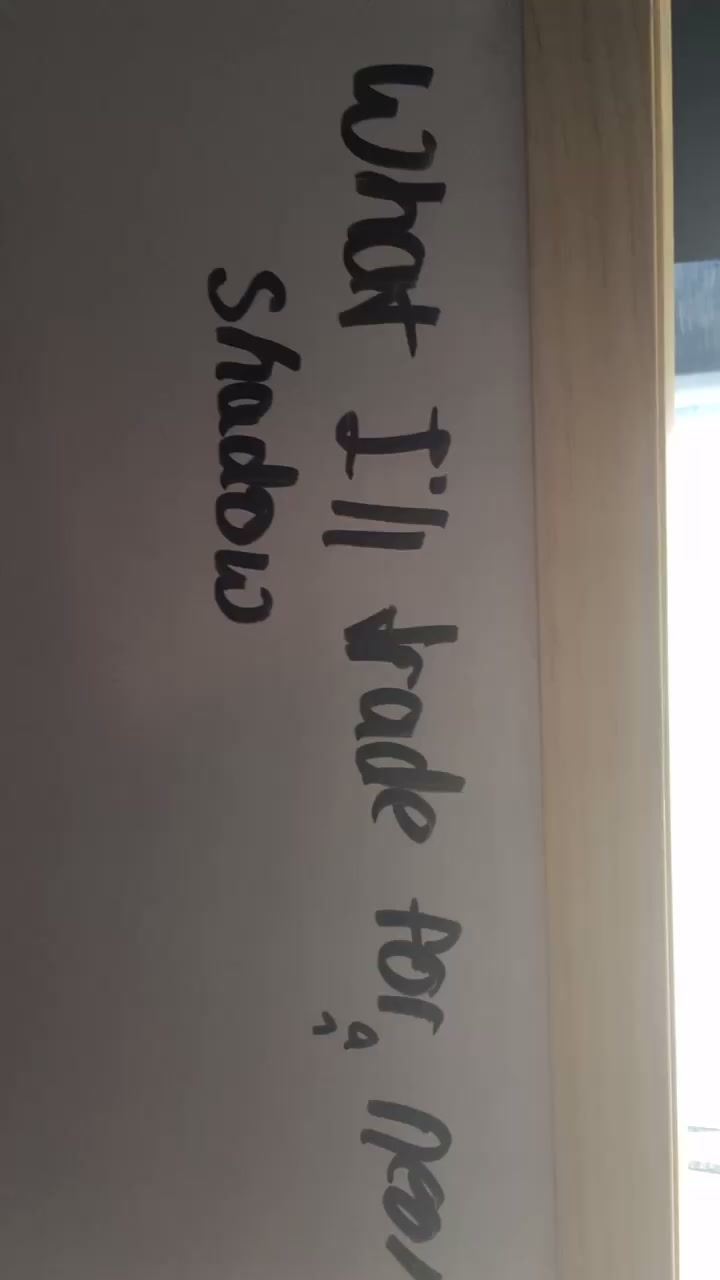 What I'll trade for a
Shadow